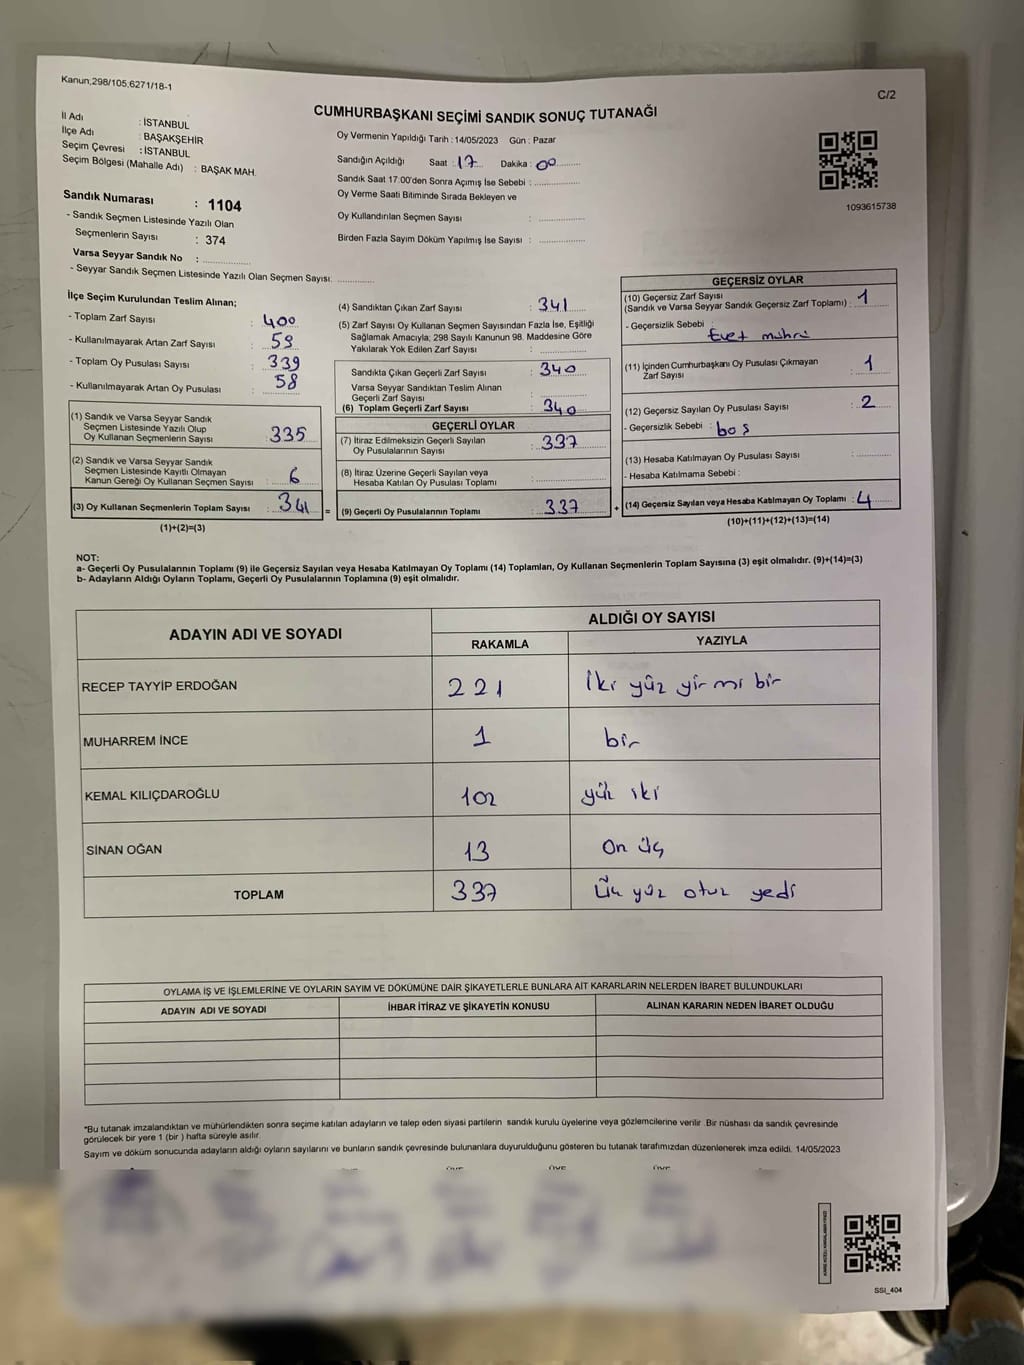 Kanun,298/105,6271/18-1
C/2
CUMHURBAŞKANI SEÇİMİ SANDIK SONUÇ TUTANAĞI
İl Adı : İSTANBUL
İlçe Adı : BAŞAKŞEHİR
Seçim Çevresi : İSTANBUL
Seçim Bölgesi (Mahalle Adı) : BAŞAK MAH.
Oy Vermenin Yapıldığı Tarih : 14/05/2023 Gün : Pazar
Sandığın Açıldığı Saat : 17 Dakika : 00
Sandık Saat 17:00'den Sonra Açımış İse Sebebi :
Oy Verme Saati Bitiminde Sırada Bekleyen ve
Oy Kullandırılan Seçmen Sayısı :
Birden Fazla Sayım Döküm Yapılmış İse Sayısı :
1093615738
Sandık Numarası : 1104
- Sandık Seçmen Listesinde Yazılı Olan
Seçmenlerin Sayısı : 374
Varsa Seyyar Sandık No :
- Seyyar Sandık Seçmen Listesinde Yazılı Olan Seçmen Sayısı:
İlçe Seçim Kurulundan Teslim Alınan;
- Toplam Zarf Sayısı : 400
- Kullanılmayarak Artan Zarf Sayısı : 59
- Toplam Oy Pusulası Sayısı : 339
- Kullanılmayarak Artan Oy Pusulası : 58
(1) Sandık ve Varsa Seyyar Sandık
Seçmen Listesinde Yazılı Olup
Oy Kullanan Seçmenlerin Sayısı : 335
(2) Sandık ve Varsa Seyyar Sandık
Seçmen Listesinde Kayıtlı Olmayan
Kanun Gereği Oy Kullanan Seçmen Sayısı : 6
(3) Oy Kullanan Seçmenlerin Toplam Sayısı : 341 =
(1)+(2)=(3)
(4) Sandıktan Çıkan Zarf Sayısı : 341
(5) Zarf Sayısı Oy Kullanan Seçmen Sayısından Fazla İse, Eşitliği
Sağlamak Amacıyla; 298 Sayılı Kanunun 98. Maddesine Göre
Yakılarak Yok Edilen Zarf Sayısı :
Sandıkta Çıkan Geçerli Zarf Sayısı : 340
Varsa Seyyar Sandıktan Teslim Alınan
Geçerli Zarf Sayısı :
(6) Toplam Geçerli Zarf Sayısı : 340
GEÇERLİ OYLAR
(7) İtiraz Edilmeksizin Geçerli Sayılan
Oy Pusulalarının Sayısı : 337
(8) İtiraz Üzerine Geçerli Sayılan veya
Hesaba Katılan Oy Pusulası Toplamı :
(9) Geçerli Oy Pusulalarının Toplamı : 337 +
GEÇERSİZ OYLAR
(10) Geçersiz Zarf Sayısı
(Sandık ve Varsa Seyyar Sandık Geçersiz Zarf Toplamı) : 1
- Geçersizlik Sebebi :
Evet mührü
(11) İçinden Cumhurbaşkanı Oy Pusulası Çıkmayan
Zarf Sayısı : 1
(12) Geçersiz Sayılan Oy Pusulası Sayısı : 2
- Geçersizlik Sebebi : boş
(13) Hesaba Katılmayan Oy Pusulası Sayısı :
- Hesaba Katılmama Sebebi :
(14) Geçersiz Sayılan veya Hesaba Katılmayan Oy Toplamı : 4
(10)+(11)+(12)+(13)=(14)
NOT:
a- Geçerli Oy Pusulalarının Toplamı (9) ile Geçersiz Sayılan veya Hesaba Katılmayan Oy Toplamı (14) Toplamları, Oy Kullanan Seçmenlerin Toplam Sayısına (3) eşit olmalıdır. (9)+(14)=(3)
b- Adayların Aldığı Oyların Toplamı, Geçerli Oy Pusulalarının Toplamına (9) eşit olmalıdır.
ADAYIN ADI VE SOYADI
ALDIĞI OY SAYISI
RAKAMLA YAZIYLA
RECEP TAYYİP ERDOĞAN 221 İki yüz yirmi bir
MUHARREM İNCE 1 bir
KEMAL KILIÇDAROĞLU 102 yüz iki
SİNAN OĞAN 13 On üç
TOPLAM 337 Üç yüz otuz yedi
OYLAMA İŞ VE İŞLEMLERİNE VE OYLARIN SAYIM VE DÖKÜMÜNE DAİR ŞİKAYETLERLE BUNLARA AİT KARARLARIN NELERDEN İBARET BULUNDUKLARI
ADAYIN ADI VE SOYADI İHBAR İTİRAZ VE ŞİKAYETİN KONUSU ALINAN KARARIN NEDEN İBARET OLDUĞU
*Bu tutanak imzalandıktan ve mühürlendikten sonra seçime katılan adayların ve talep eden siyasi partilerin sandık kurulu üyelerine veya gözlemcilerine verilir. Bir nüshası da sandık çevresinde
görülecek bir yere 1 (bir ) hafta süreyle asılır.
Sayım ve döküm sonucunda adayların aldığı oyların sayılarını ve bunların sandık çevresinde bulunanlara duyurulduğunu gösteren bu tutanak tarafımızdan düzenlenerek imza edildi. 14/05/2023
SSI_404